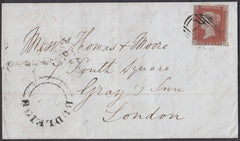 Messrs Thomas & Moore
South Square
Gray's Inn
London